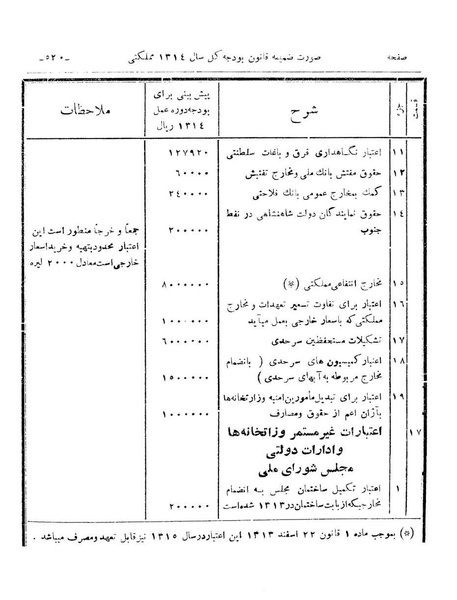 صفحه صورت ضمیمه قانون بودجه کل سال ۱۳۱٤ مملکتی -۵۲۰-
قسمت جزء شرح پیش بینی برای ملاحظات
بودجه دوره عمل
۱۳۱٤ ریال
۱۱ اعتبار نگاهداری قرق و باغات سلطنتی ۱۲۷۹۲۰
۱۲ حقوق مفتش بانک ملی و مخارج تفتیش ۶۰۰۰۰
۱۳ کمک بمخارج عمومی بانک فلاحتی ۲٤۰۰۰۰
۱٤ حقوق نمایندگان دولت شاهنشاهی در نقط
جنوب ۲۰۰۰۰۰ جمعاً و خرجاً منظور است این
اعتبار محدود بتهیه و خرید اسعار
خارجی است معادل ۲۰۰۰ لیره
۱۵ مخارج انتفاعی مملکتی (*) ۸۰۰۰۰۰۰
۱۶ اعتبار برای تفاوت تسعیر تعهدات و مخارج
مملکتی که باسعار خارجی بعمل میآید ۱۰۰۰۰۰۰
۱۷ تشکیلات مستحفظین سرحدی ۶۰۰۰۰۰۰
۱۸ اعتبار کمیسیون های سرحدی ( بانضمام
مخارج مربوطه به آبهای سرحدی ) ۱۵۰۰۰۰۰
۱۹ اعتبار برای تبدیل مأمورین امنیه وزارتخانه‌ها
بآژان اعم از حقوق ومصارف ۱۰۰۰۰۰۰
۱۷ اعتبارات غیر مستمر وزارتخانه‌ها
و ادارات دولتی
مجلس شورای ملی
۱ اعتبار تکمیل ساختمان مجلس به انضمام
مخارجیکه از بابت ساختمان در ۱۳۱۳ شده است ۲۰۰۰۰۰
(*) بموجب ماده ۱ قانون ۲۲ اسفند ۱۳۱۳ این اعتبار در سال ۱۳۱۵ نیز قابل تعهد و مصرف میباشد .